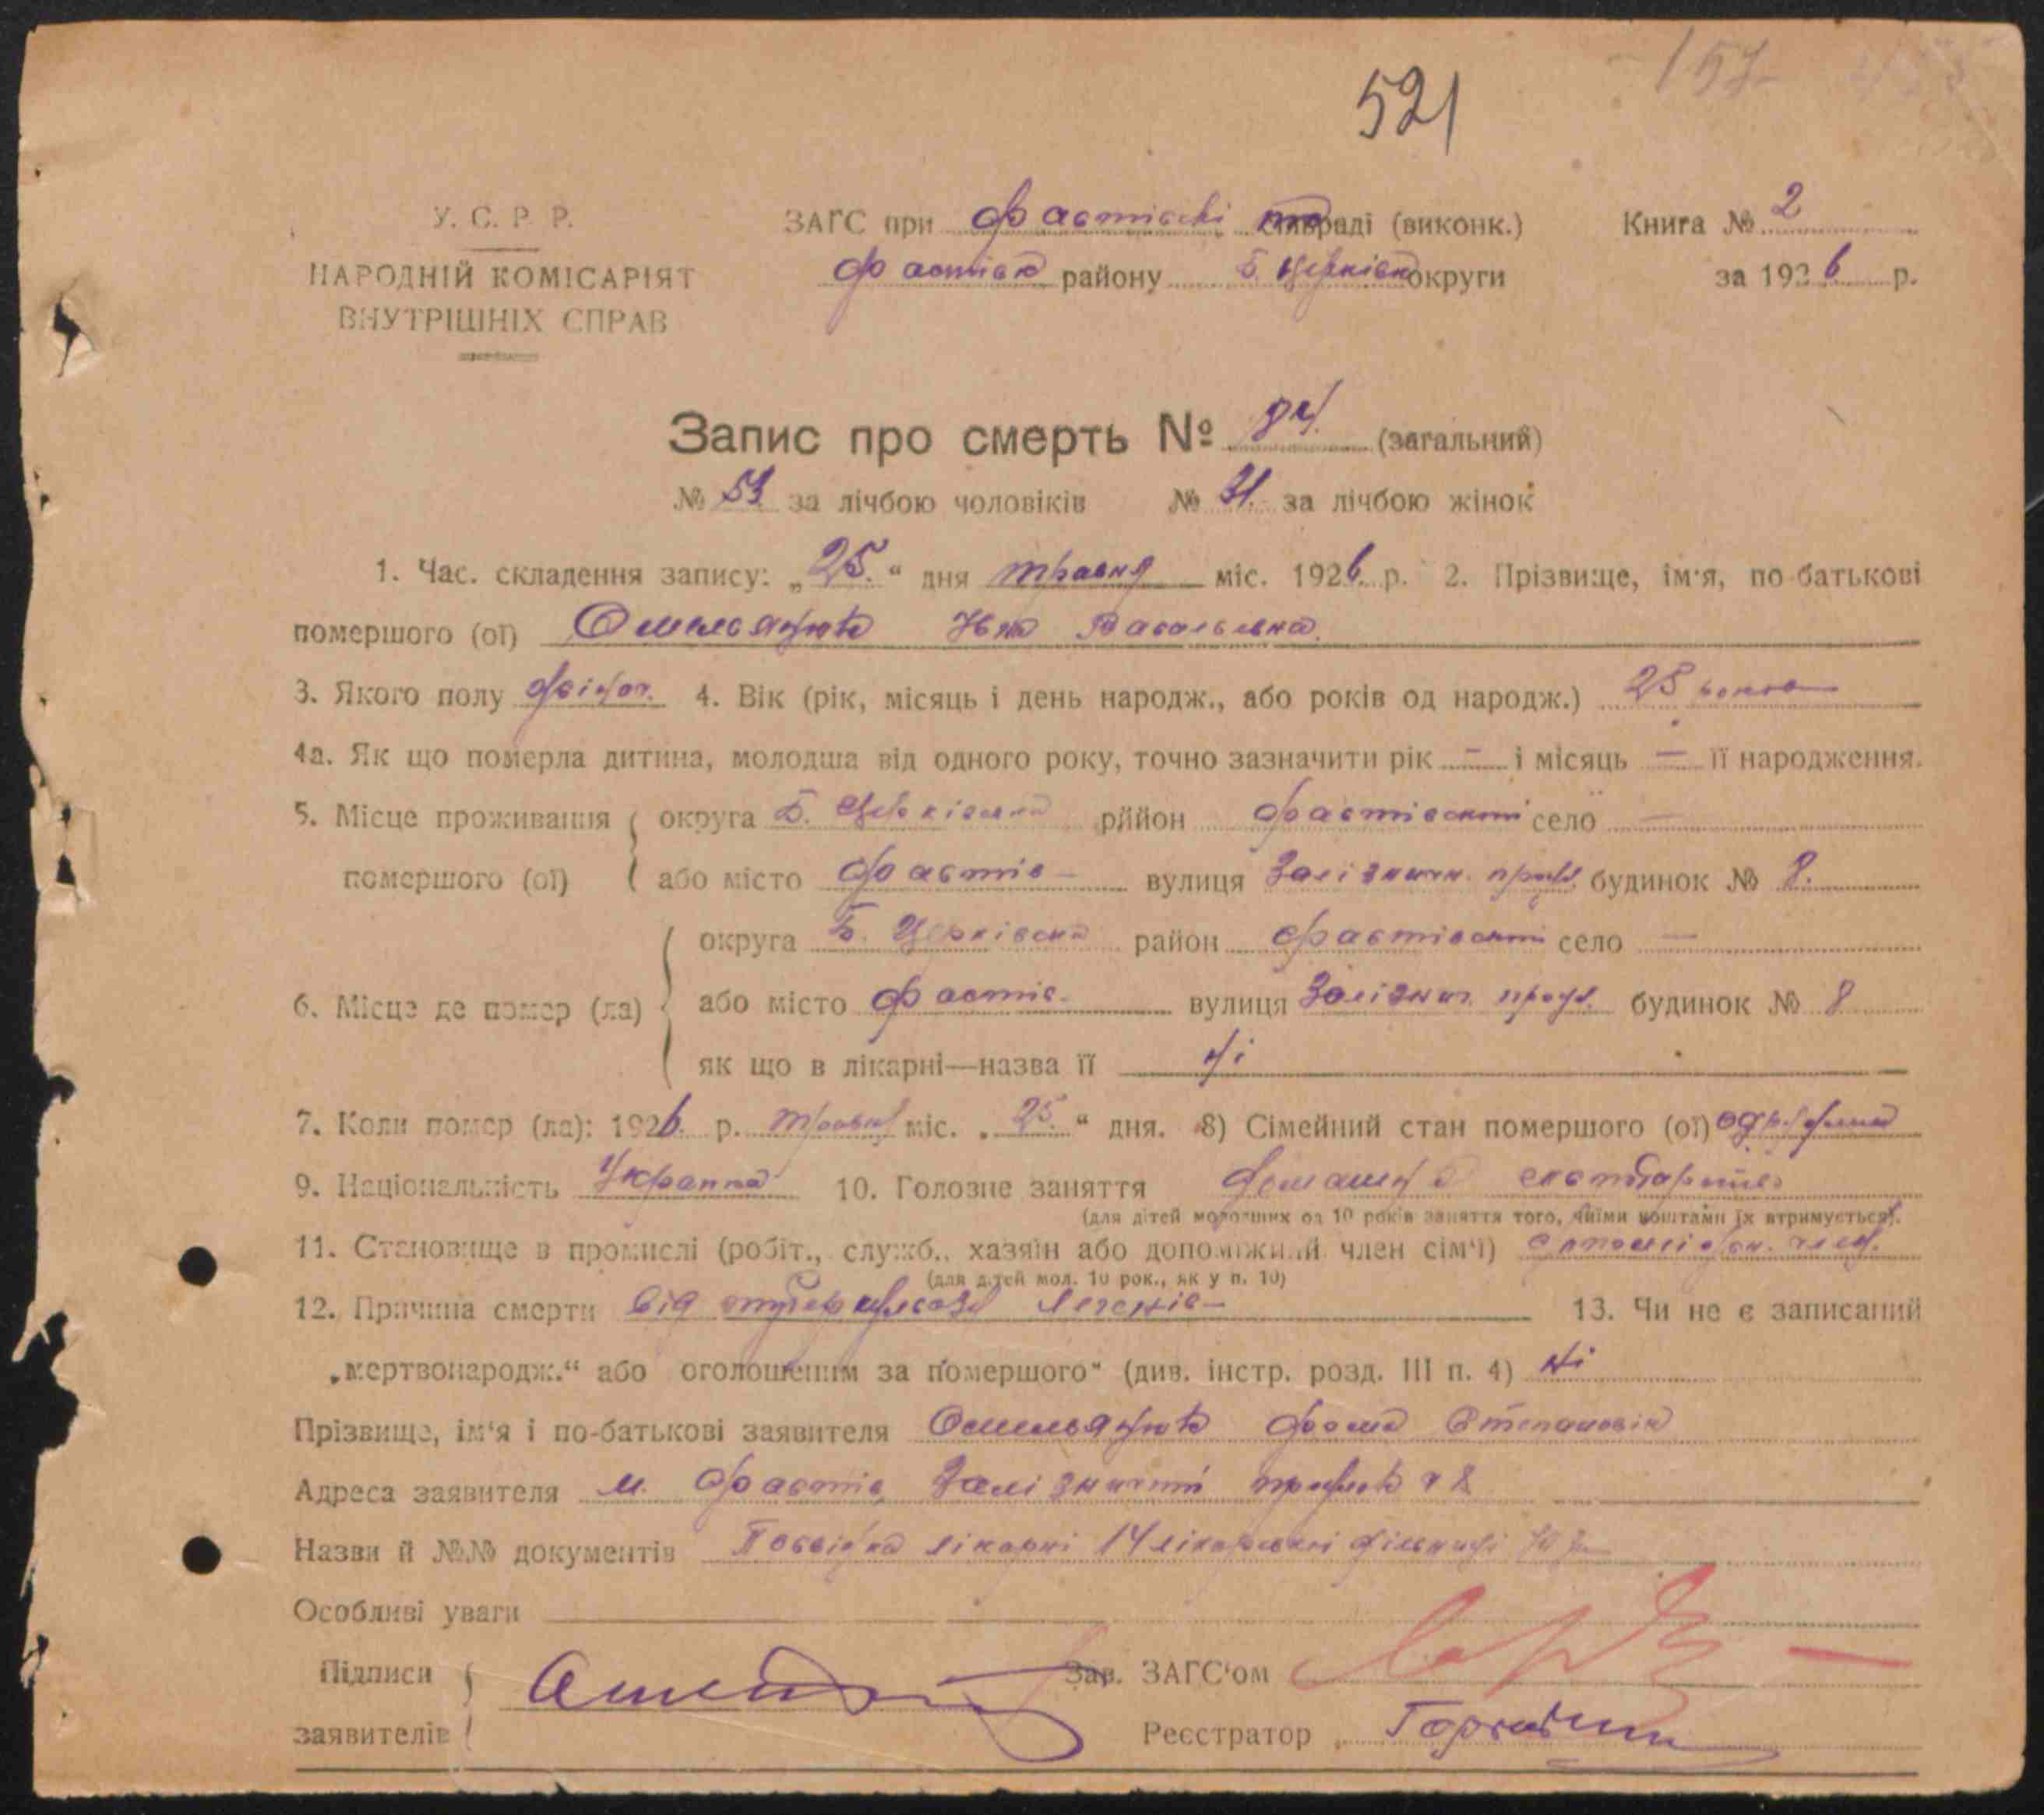 521
157
У. С. Р. Р.
НАРОДНІЙ КОМІСАРІЯТ
ВНУТРІШНІХ СПРАВ
ЗАГС при Фастівські раді (виконк.)
Фастівск району Б. Церківск округи
Книга № 2
за 1926 р.
Запис про смерть № 84 (загальний)
№ 53 за лічбою чоловіків № 31. за лічбою жінок
1. Час. складення запису: „25.“ дня травня міс. 1926. р. 2. Прізвище, ім'я, по-батькові
помершого (ої) Омельянюк Васильевна
3. Якого полу 4. Вік (рік, місяць і день народж., або років од народж.) 25 років
4а. Як що померла дитина, молодша від одного року, точно зазначити рік — і місяць — її народження.
5. Місце проживання округа Б. Церківська рійон Фастівский село —
помершого (ої) або місто Фастів — вулиця Залізничн. будинок № 8.
округа Б. Церківска район Фастівский село —
6. Місце де помер (ла) або місто Фастів. вулиця Залізнич. будинок № 8
як що в лікарні—назва її ні
7. Коли помер (ла): 1926. р. травня міс. „25.“ дня. 8) Сімейний стан помершого (ої)
9. Національність Українка 10. Головне заняття
(для дітей молодших од 10 років заняття того, чиїми коштами їх втримується).
11. Становище в промислі (робіт., служб., хазяїн або допоміжний член сім'ї) член.
(для дітей мол. 10 рок., як у п. 10)
12. Причина смерти від туберкульоза легенів — 13. Чи не є записаний
„мертвонародж.“ або оголошеним за помершого“ (див. інстр. розд. III п. 4) ні
Прізвище, ім'я і по-батькові заявителя Омельянюк Фома Степанович
Адреса заявителя м. Фастів, Залізничний 8
Назви й №№ документів Посвідка лікарні 14 лікарської дільниці
Особливі уваги
Підписи
заявителів
Зав. ЗАГС'ом
Реєстратор